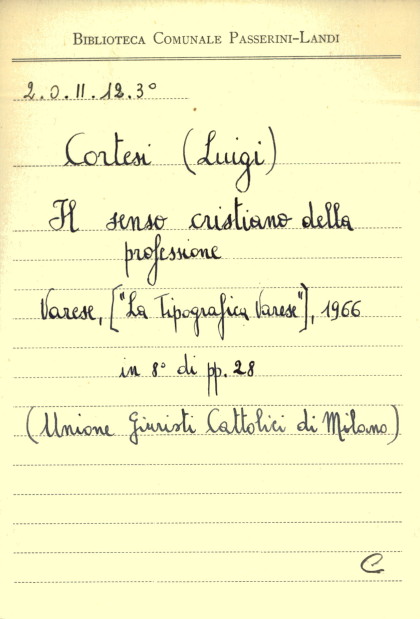 BIBLIOTECA COMUNALE PASSERINI-LANDI
2.O.II.12.3°
Cortesi (Luigi)
Il senso cristiano della
professione
Varese, ["La Tipografica Varese"], 1966
in 8° di pp. 28
(Unione Giuristi Cattolici di Milano)
C